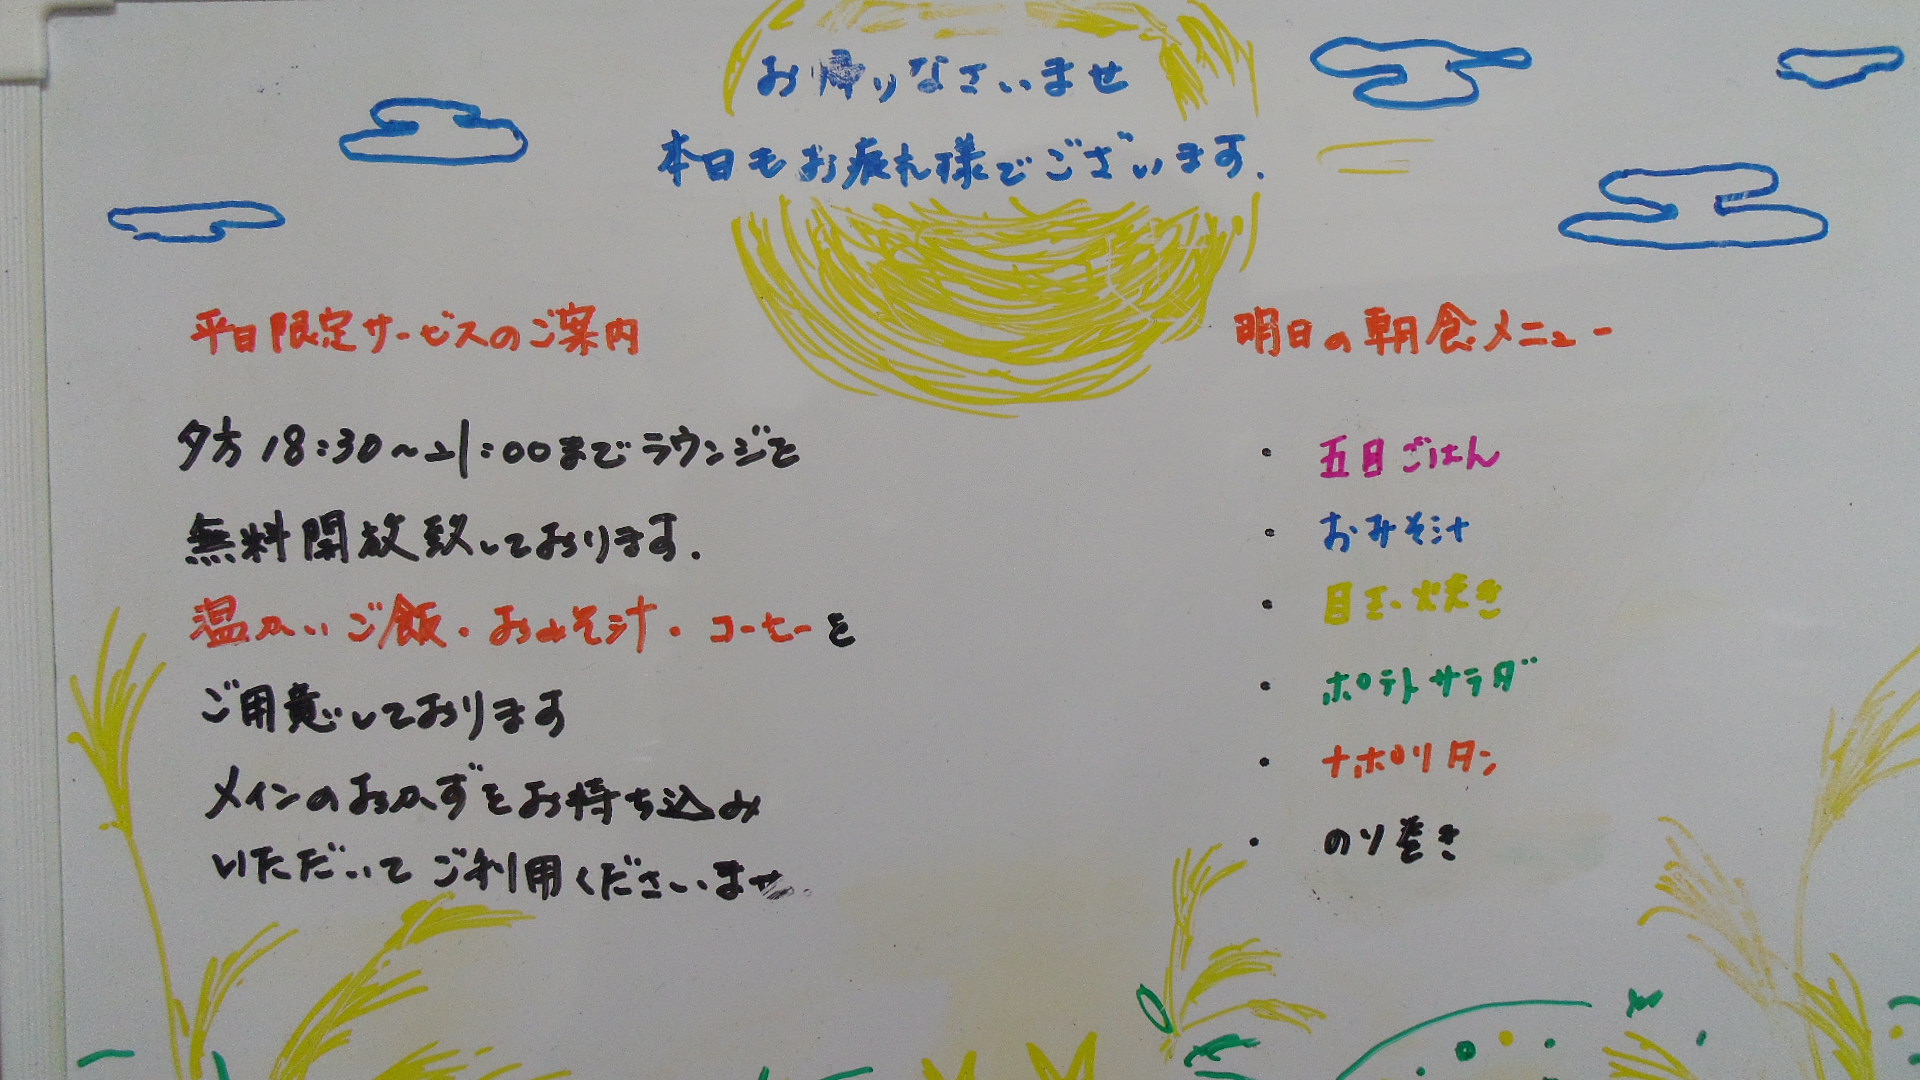 お帰りなさいませ
本日もお疲れ様でございます.
平日限定サービスのご案内
夕方18:30～21:00までラウンジを
無料開放致しております.
温かいご飯・おみそ汁・コーヒーを
ご用意しております
メインのおかずをお持ち込み
いただいてご利用くださいませ.
明日の朝食メニュー
・五目ごはん
・おみそ汁
・目玉焼き
・ポテトサラダ
・ナポリタン
・のり巻き